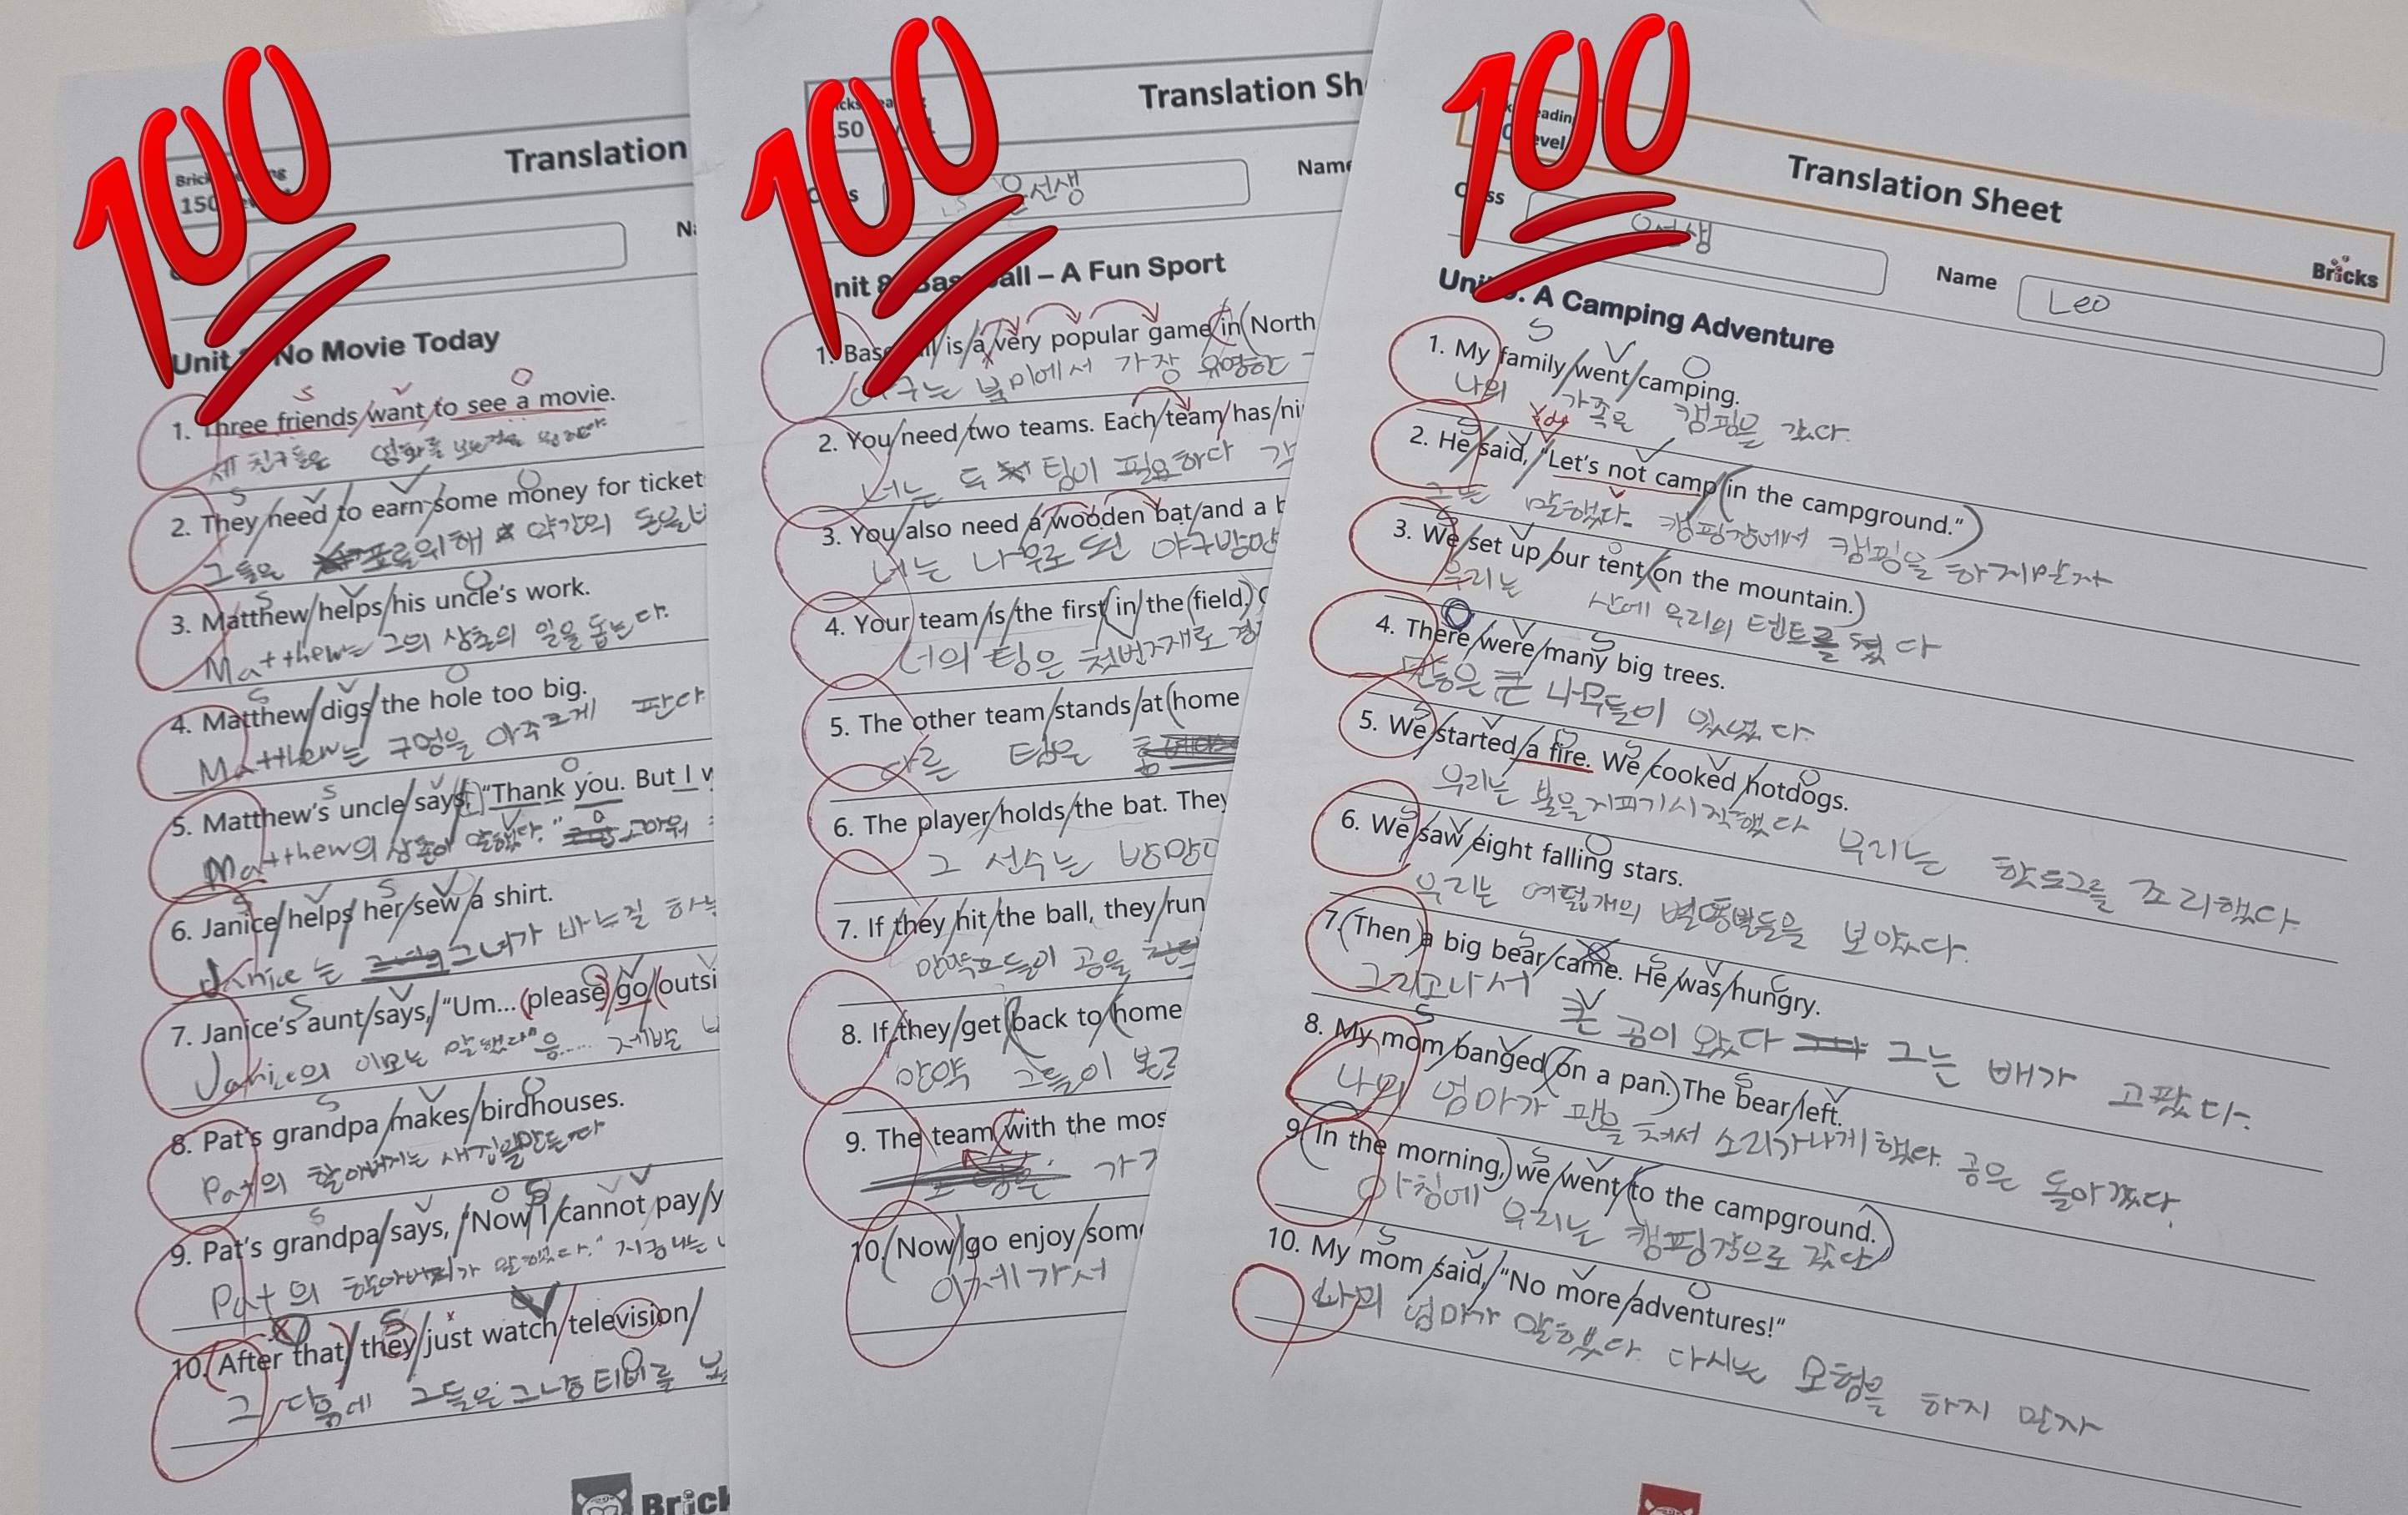 Translation
150
Unit No Movie Today
1. Three friends want to see a movie.
세 친구들은 영화를 보는것을 원한다
2. They need to earn some money for ticket
그들은 표를위해 약간의 돈을
3. Matthew helps his uncle's work.
Matthew는 그의 삼촌의 일을 돕는다.
4. Matthew digs the hole too big.
Matthew는 구멍을 아주크게 판다
5. Matthew's uncle says, "Thank you. But I
Matthew의 삼촌이 말했다." 고마워
6. Janice helps her sew a shirt.
Janice는 그녀가 바느질 하는
7. Janice's aunt says, "Um... (please) go (outsi
Janice의 이모는 말했다"음..... 제발
8. Pat's grandpa makes birdhouses.
Pat의 할아버지는 새집을만든다
9. Pat's grandpa says, "Now I cannot pay y
Pat의 할아버지가 말했다." 지금나는
10. (After that,) they just watch television
그 다음에 그들은 그냥 티비를
Translation Sh
Name
50
은선생
Unit 8. Baseball – A Fun Sport
1. Baseball is a very popular game in (North
야구는 북미에서 가장 유명한
2. You need two teams. Each team has ni
너는 두 팀이 필요하다 각
3. You also need a wooden bat and a b
너는 나무로 된 야구방망
4. Your team is the first (in the (field.)
너의 팀은 첫번째로
5. The other team stands at (home
다른 팀은 홈
6. The player holds the bat. They
그 선수는 방망이
7. If they hit the ball, they run
만약그들이 공을
8. If they get (back to (home
만약 그들이
9. The team (with the mos
10. (Now) go enjoy some
이제가서
Translation Sheet
Bricks
Name
Leo
A Camping Adventure
1. My family went camping.
나의 가족은 캠핑을 갔다.
2. He said, "Let's not camp (in the campground.")
그는 말했다. 캠핑장에서 캠핑을 하지말자
3. We set up our tent (on the mountain.)
우리는 산에 우리의 텐트를 쳤다
4. There were many big trees.
많은 큰 나무들이 있었다.
5. We started a fire. We cooked hotdogs.
우리는 불을지피기시작했다 우리는 핫도그를 조리했다
6. We saw eight falling stars.
우리는 여덟개의 별똥별들을 보았다.
7. (Then) a big bear came. He was hungry.
그리고나서 큰 곰이 왔다 그는 배가 고팠다.
8. My mom banged (on a pan.) The bear left.
나의 엄마가 팬을 쳐서 소리가나게했다. 곰은 돌아갔다.
9. (In the morning,) we went (to the campground.)
아침에 우리는 캠핑장으로 갔다
10. My mom said, "No more adventures!"
나의 엄마가 말했다. 다시는 모험을 하지 말자